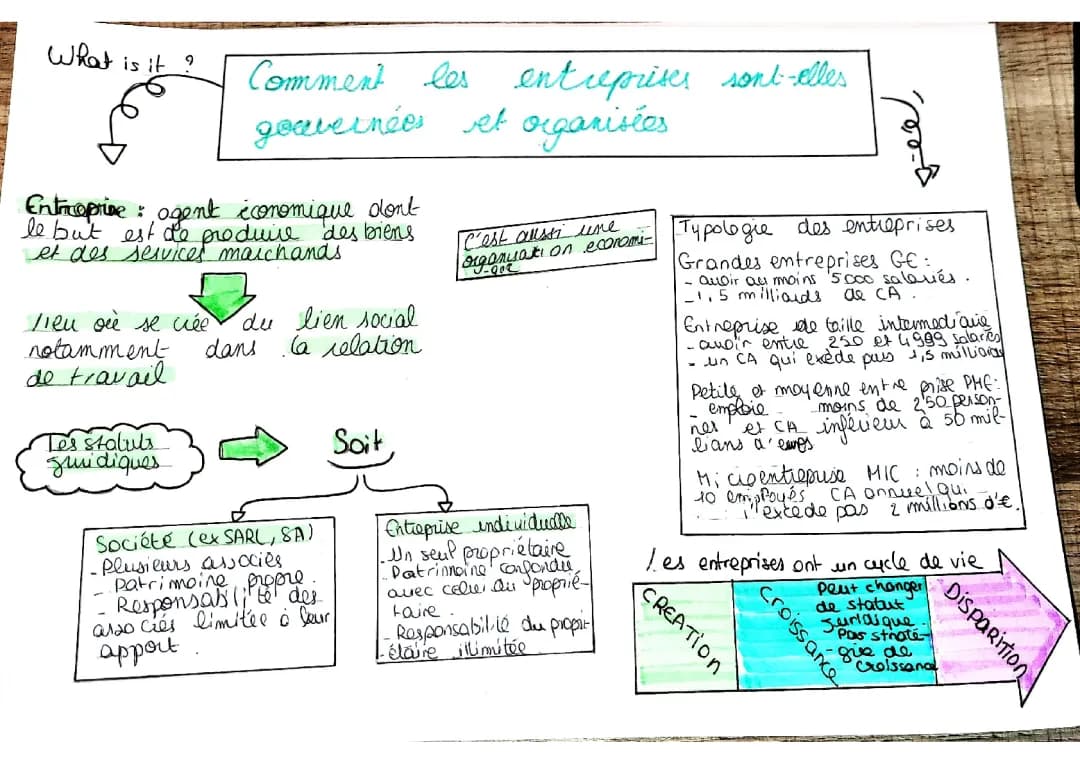 What is it ?
Comment les entreprises sont-elles
gouvernées et organisées
Entreprise : agent économique dont
le but est de produire des biens
et des services marchands
lieu où se crée du lien social
notamment dans la relation
de travail
C'est aussi une
organisation economi-
-que
Les statuts
juridiques
Soit
Société (ex SARL, SA)
- Plusieurs associés
Patrimoine propre.
- Responsabilité des
associés limitée à leur
apport.
Entreprise individuelle
- Un seul propriétaire
- Patrimoine confondu
avec celui du proprié-
taire.
- Responsabilité du propri-
étaire illimitée
Typologie des entreprises
Grandes entreprises GE :
- avoir au moins 5000 salariés.
- 1,5 milliards de CA.
Entreprise de taille intermediaire
- avoir entre 250 et 4999 salariés
- un CA qui exède pas 1,5 milliards
Petite et moyenne entre prise PME:
- emploie moins de 250 person-
nes et CA inférieur à 50 mil-
lions d'euros
Microentreprise MIC : moins de
10 employés CA annuel qui
n'excède pas 2 millions d'€.
Les entreprises ont un cycle de vie
CREATION
Croissance
Peut changer
de statut
juridique.
Par straté-
-gie de
croissance
Disparition